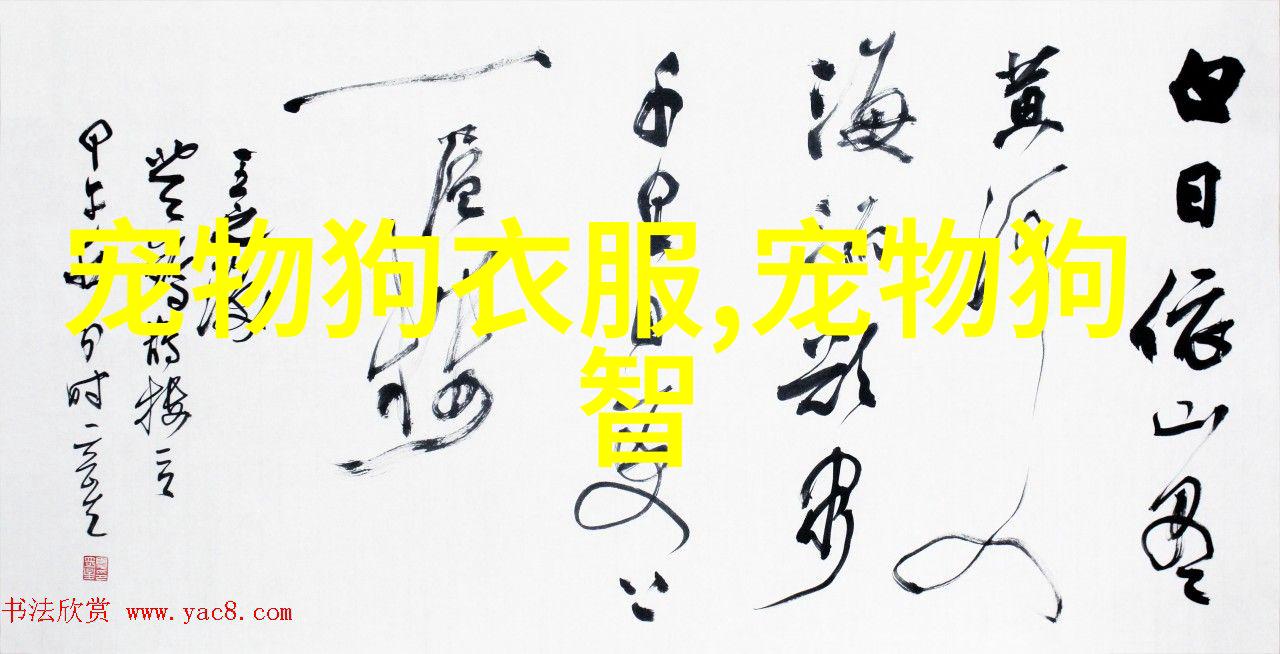 白日依山尽
黄河入
海流欲穷
千里目更上
一层楼
王之涣
宠物狗衣服,宠物狗
智
书法欣赏 www.yac8.com